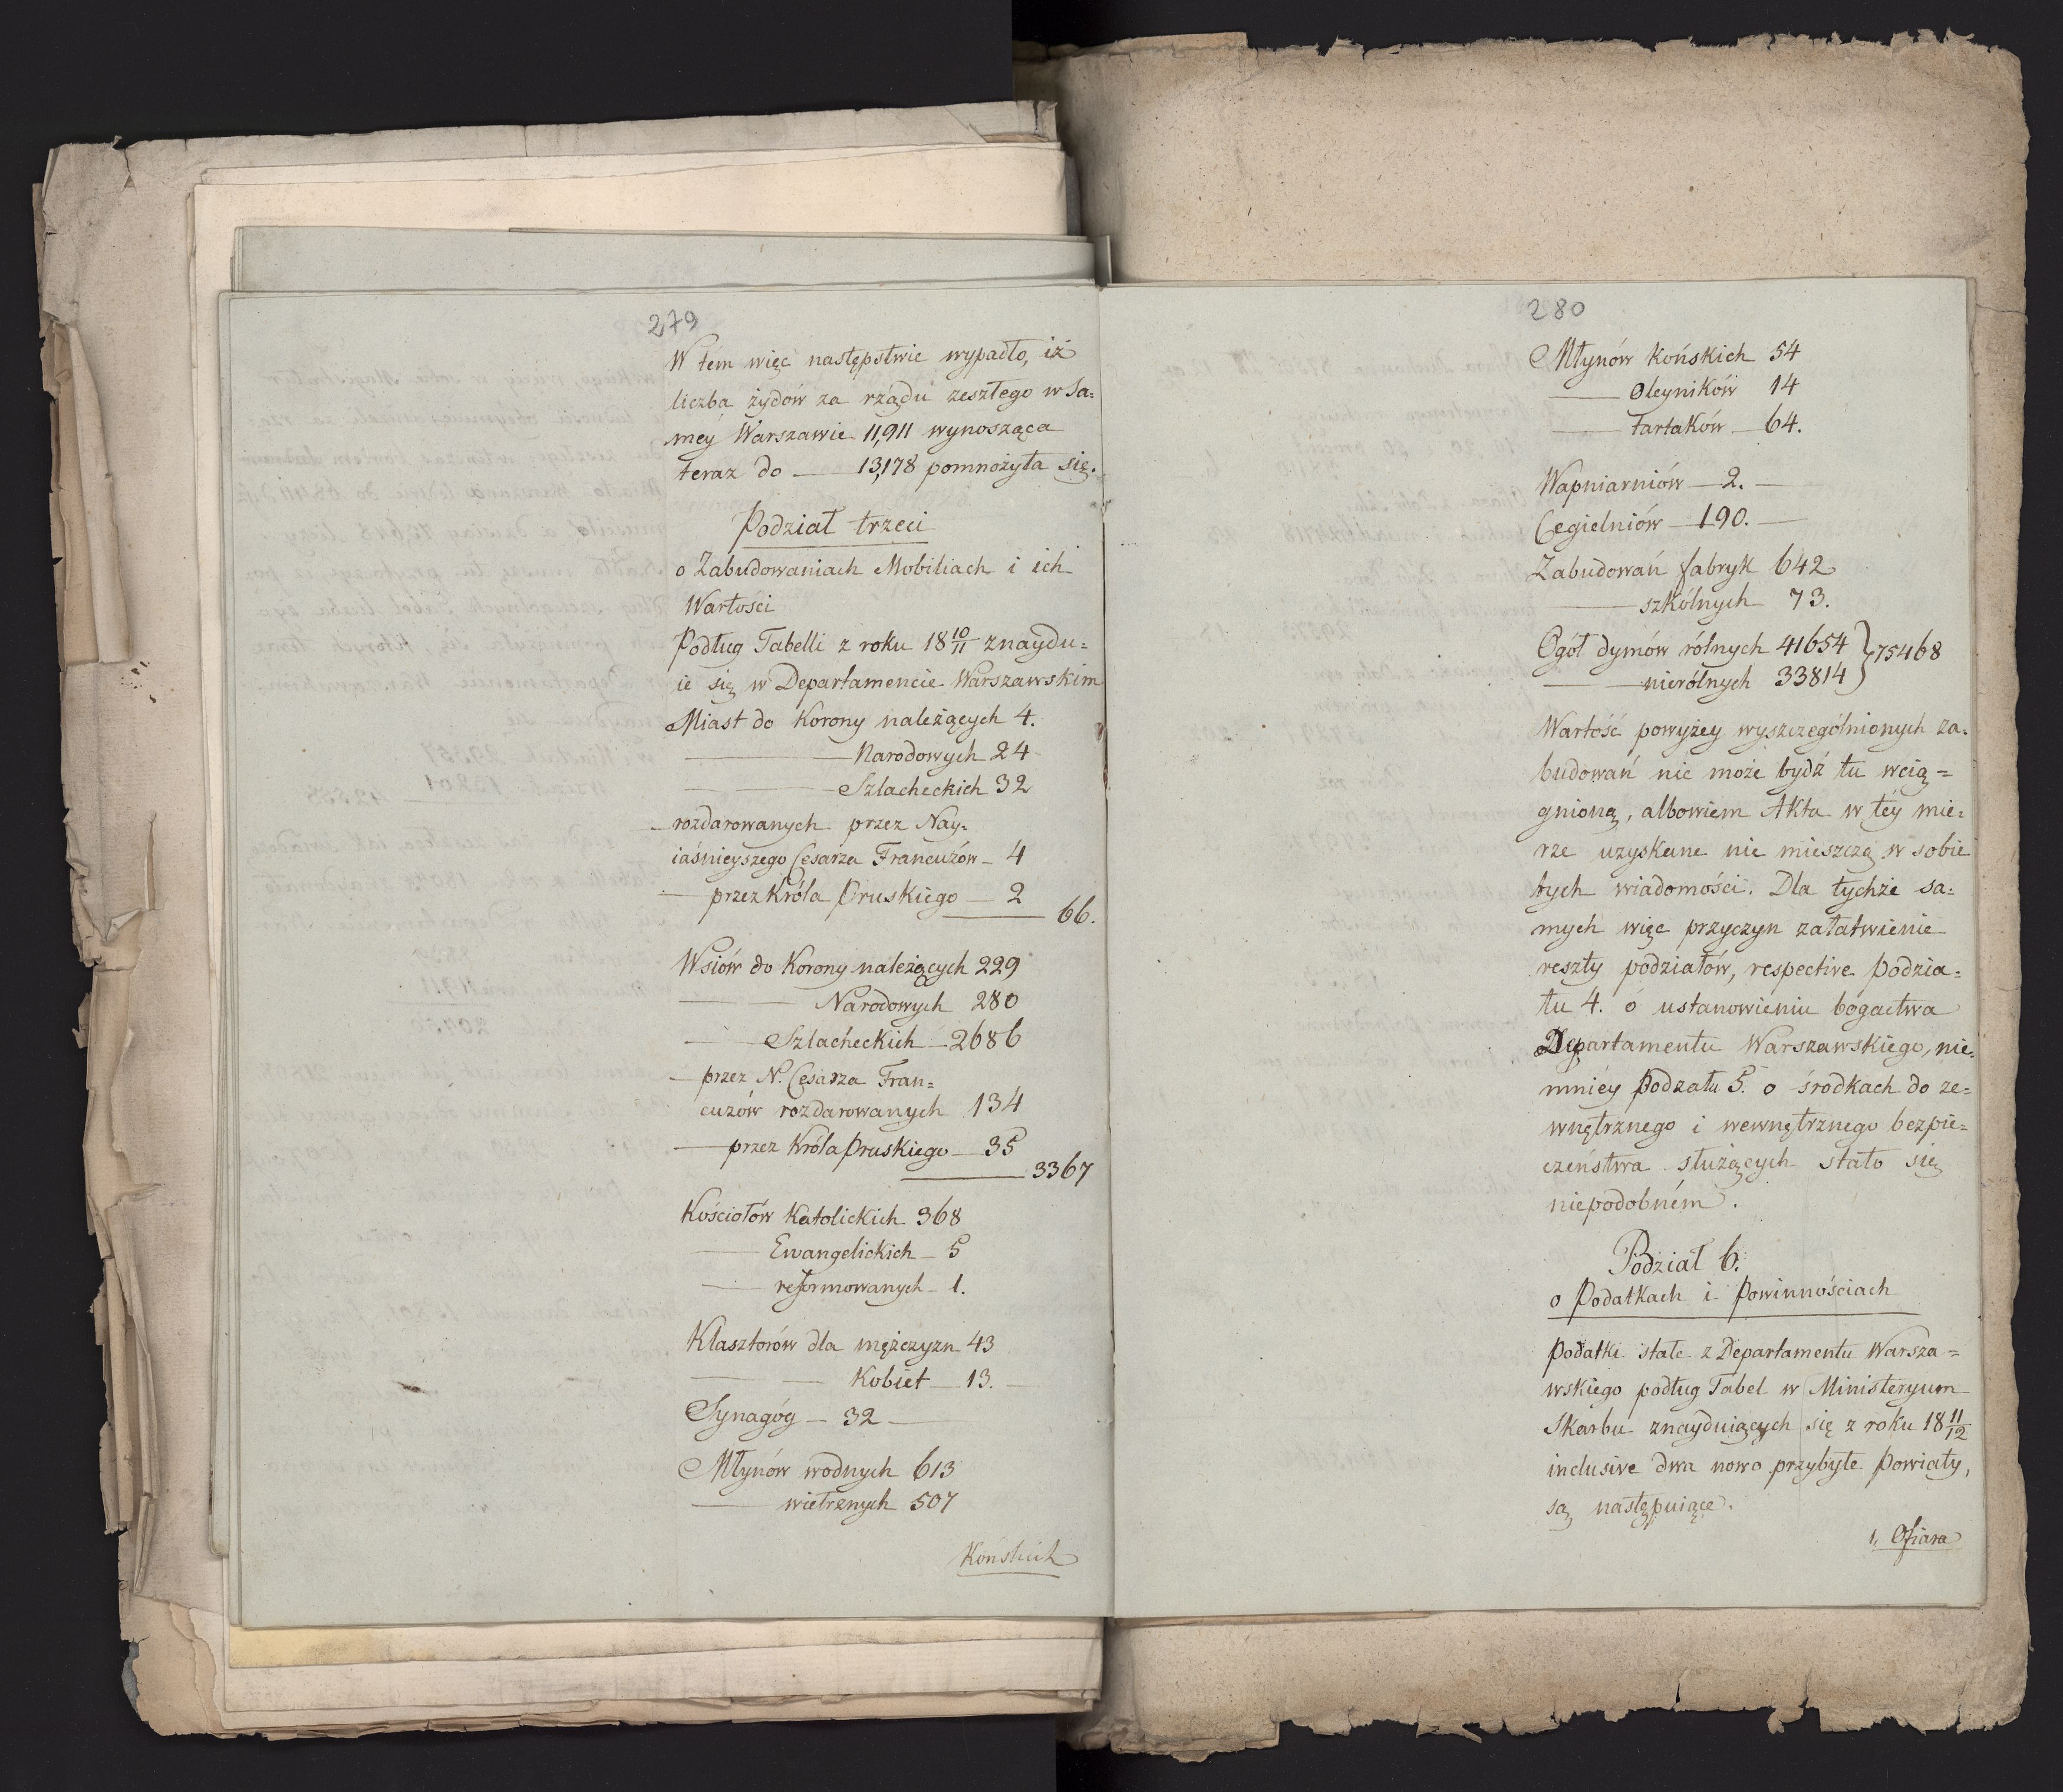 279
W tem więc następstwie wypadło, iż
liczba żydów za rządu zeszłego w Sa=
méy Warszawie 11,911 wynosząca
teraz do — 13,178 pomnożyła się.
Podział trzeci
o Zabudowaniach Mobiliach i ich
Wartości
Podług Tabelli z roku 18 10/11 znaydu=
ie się w Departamencie Warszawskim
Miast do Korony należących 4.
— Narodowych 24
— Szlacheckich 32
— rozdarowanych przez Nay=
iaśnieyszego Cesarza Francuzów — 4
— przez Króla Pruskiego — 2
66.
Wsiów do Korony należących 229
— Narodowych 280
— Szlacheckich — 2686
— przez N. Cesarza Fran=
cuzów rozdarowanych 134
— przez Króla Pruskiego — 35
3367
Kościołów Katolickich 368
— Ewangelickich — 5
— reformowanych — 1.
Klasztorów dla mężczyzn 43
— Kobiet — 13.
Synagóg — 32 —
Młynów wodnych 613
— wietrznych 507
Końskich
280
Młynów Końskich 54
— Oleyników 14
— tartaków — 64.
Wapniarniów — 2. —
Cegielniów — 190. —
Zabudowań fabryk 642
— szkólnych 73.
Ogół dymów rólnych 41654 } 75468
— nierólnych 33814
Wartość powyżey wyszczególnionych za=
budowań nie może bydź tu wcią=
gnioną, albowiem Akta w téy mie=
rze uzyskane nie mieszczą w sobie
tych wiadomości. Dla tychże sa=
mych więc przyczyn załatwienie
reszty podziałów, respective Podzia=
łu 4. o ustanowieniu bogactwa
Departamentu Warszawskiego, nie=
mniéy Podzału 5. o środkach do ze=
wnętrznego i wewnętrznego bezpie=
czeństwa służących stało się
niepodobném.
Podział 6.
o Podatkach i Powinnościach
Podatki stałe z Departamentu Warsza=
wskiego podług Tabel w Ministeryum
Skarbu znayduiących się z roku 18 11/12
inclusive dwa nowo przybyłe Powiaty,
są następuiące.
1, Ofiara